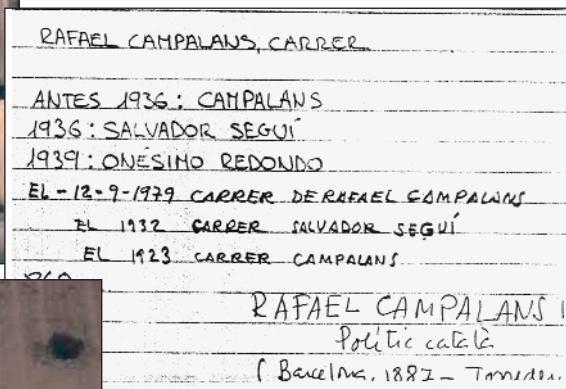 RAFAEL CAMPALANS, CARRER
ANTES 1936: CAMPALANS
1936: SALVADOR SEGUÍ
1939: ONÉSIMO REDONDO
EL - 12-9-1979 CARRER DE RAFAEL CAMPALANS
EL 1932 CARRER SALVADOR SEGUÍ
EL 1923 CARRER CAMPALANS
RAFAEL CAMPALANS
Polític català
(Barcelona, 1887 -